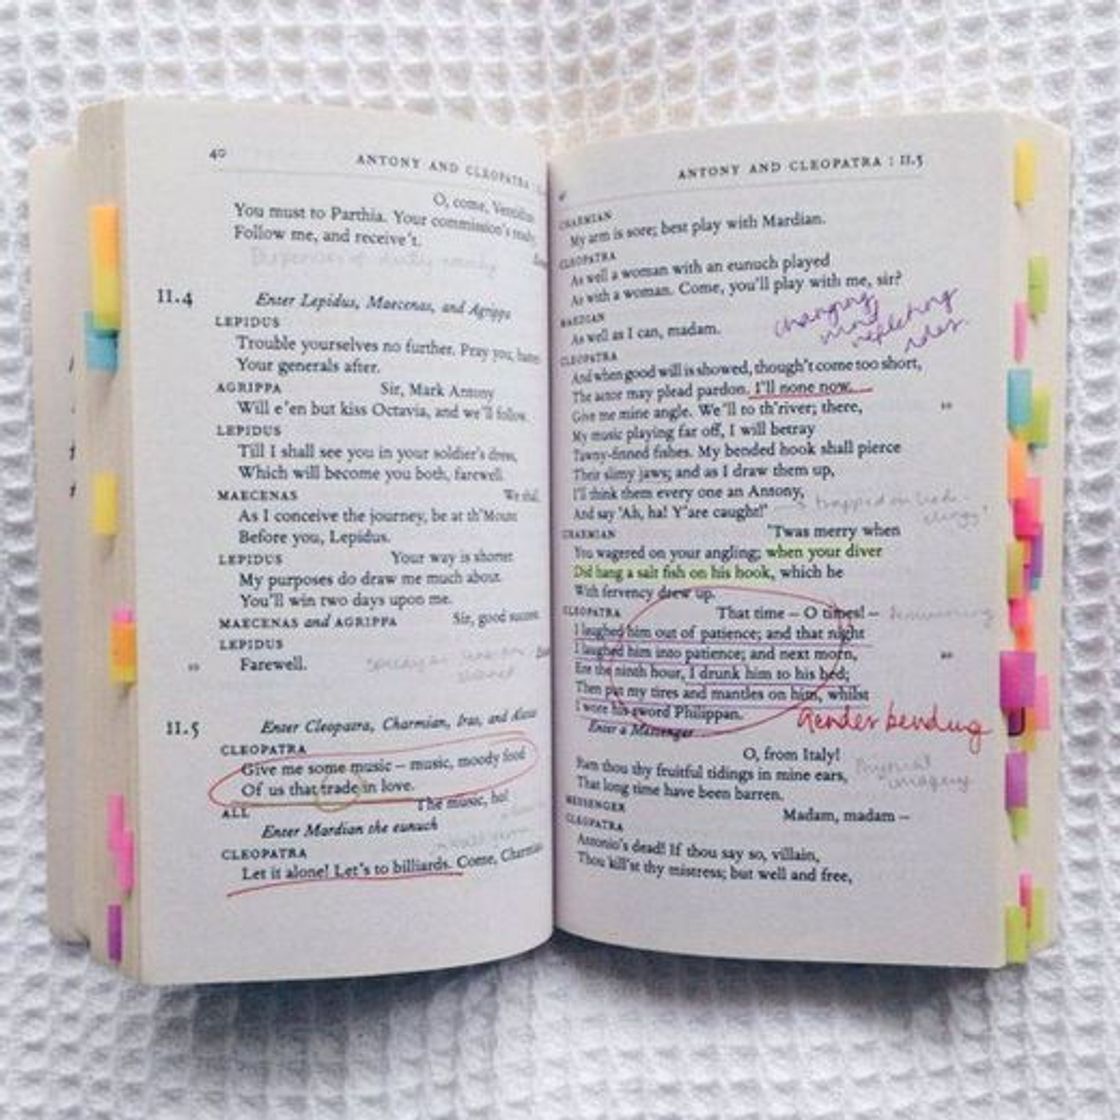 40
ANTONY AND CLEOPATRA
O, come, Ventidius
You must to Parthia. Your commission's ready
Follow me, and receive't.
II.4
Enter Lepidus, Maecenas, and Agrippa
LEPIDUS
Trouble yourselves no further. Pray you,
Your generals after.
AGRIPPA Sir, Mark Antony
Will e'en but kiss Octavia, and we'll follow.
LEPIDUS
Till I shall see you in your soldier's dress,
Which will become you both, farewell.
MAECENAS We shall,
As I conceive the journey, be at th'Mount
Before you, Lepidus.
LEPIDUS Your way is shorter.
My purposes do draw me much about.
You'll win two days upon me.
MAECENAS and AGRIPPA Sir, good success.
LEPIDUS
10 Farewell.
II.5
Enter Cleopatra, Charmian, Iras, and Alexas
CLEOPATRA
Give me some music – music, moody food
Of us that trade in love.
ALL The music, ho!
Enter Mardian the eunuch
CLEOPATRA
Let it alone! Let's to billiards. Come, Charmian
ANTONY AND CLEOPATRA : II.5
CHARMIAN
My arm is sore; best play with Mardian.
CLEOPATRA
As well a woman with an eunuch played
As with a woman. Come, you'll play with me, sir?
MARDIAN
As well as I can, madam.
changing
mind
reflecting
roles.
CLEOPATRA
And when good will is showed, though't come too short,
The actor may plead pardon. I'll none now.
Give me mine angle. We'll to th'river; there, 10
My music playing far off, I will betray
Tawny-finned fishes. My bended hook shall pierce
Their slimy jaws; and as I draw them up,
I'll think them every one an Antony,
And say 'Ah, ha! Y'are caught!'
CHARMIAN 'Twas merry when
You wagered on your angling; when your diver
Did hang a salt fish on his hook, which he
With fervency drew up.
CLEOPATRA That time – O times! –
I laughed him out of patience; and that night
I laughed him into patience; and next morn, 20
Ere the ninth hour, I drunk him to his bed;
Then put my tires and mantles on him, whilst
I wore his sword Philippan.
Gender bending
Enter a Messenger
O, from Italy!
Ram thou thy fruitful tidings in mine ears,
That long time have been barren.
physical
imagery
MESSENGER Madam, madam –
CLEOPATRA
Antonio's dead! If thou say so, villain,
Thou kill'st thy mistress; but well and free,